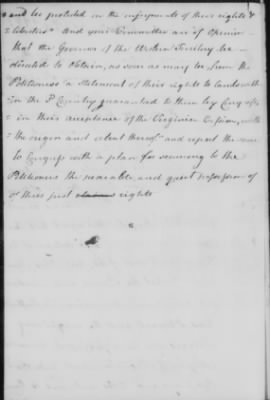 and be protected in the enjoyments of their rights &
= liberties And your Committee are of Opinion
that the Governor of the Western Territory be
directed to Obtain, as soon as may be, from the
Petitioners a statement of their rights to lands with
in the sd Country guaranteed to them by Congress
= in their acceptance of the Virginia Cession, with
the origin and extent thereof and report the same
to Congress with a plan for securing to the
Petitioners the peaceable and quiet possession of
of their just rights